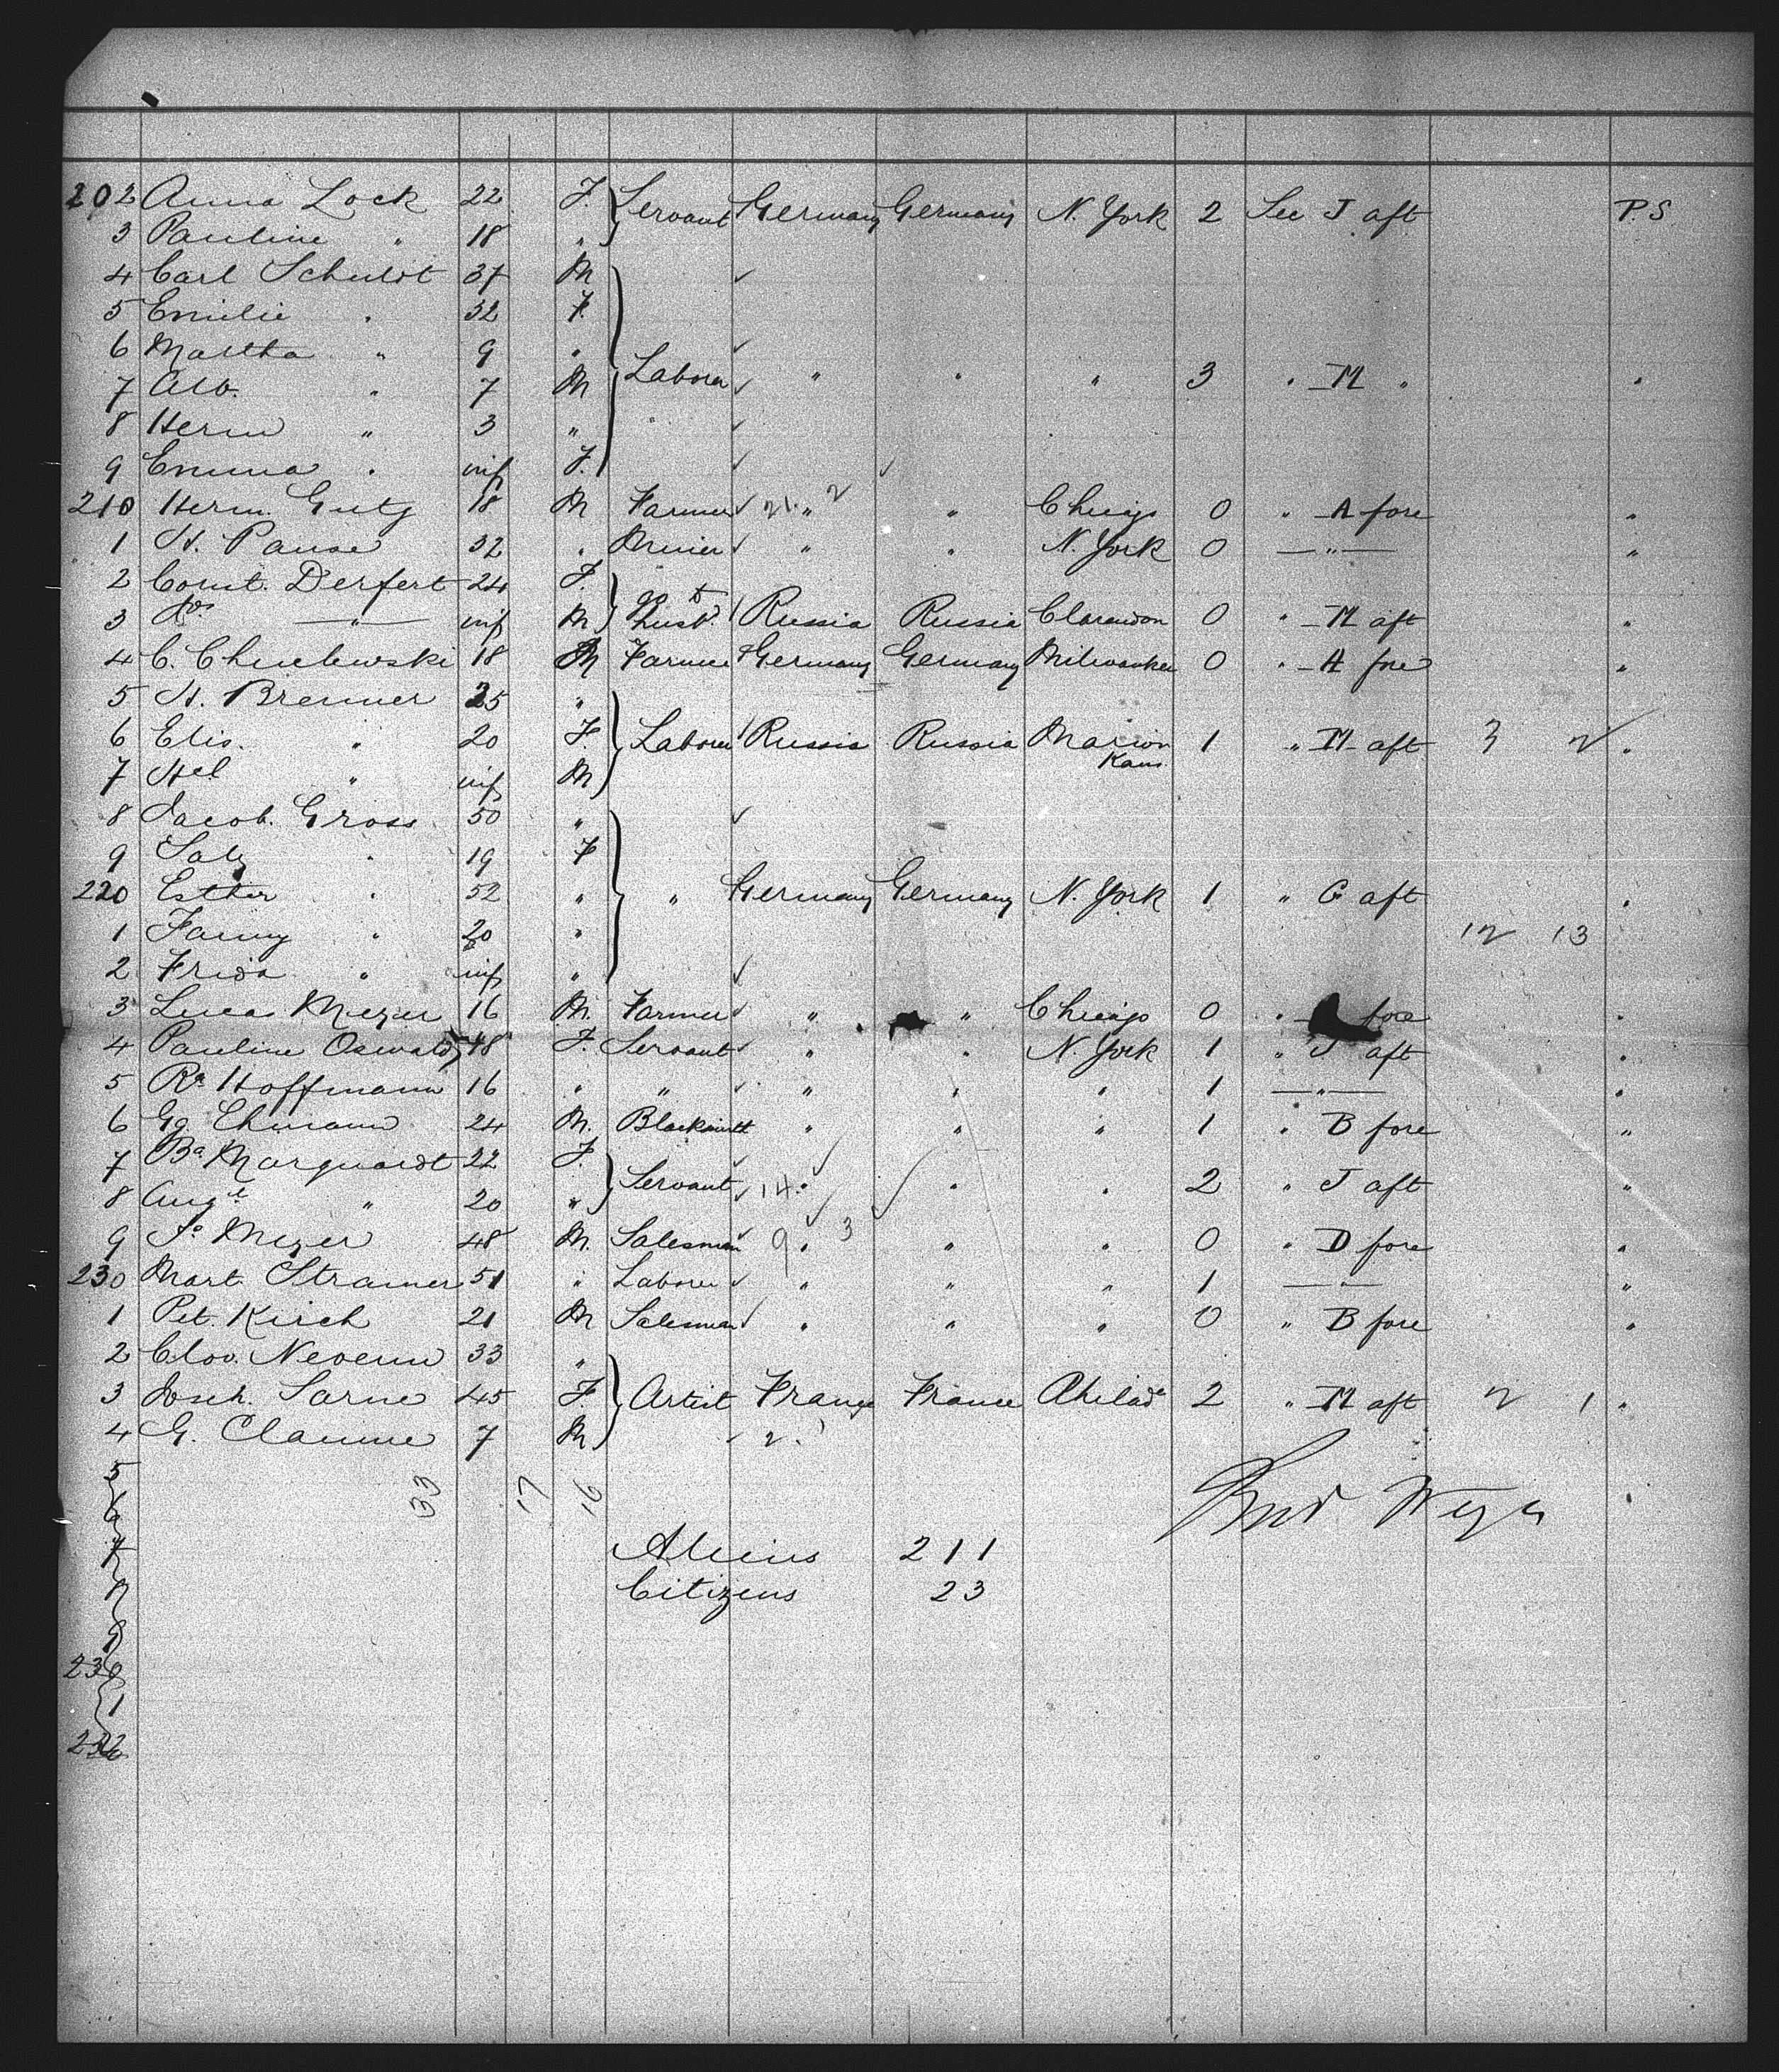 202 Anna Lock 22 F. Servant Germany Germany N. York 2 See J aft P.S.
3 Pauline " 18 "
4 Carl Schuldt 37 M
5 Emilie " 32 F.
6 Martha " 9 "
7 Alb. " 7 M Laborer " " " 3 " M " "
8 Herm " 3 "
9 Emma " inf F.
210 Herm. Gutz 18 M Farmer 21. " 2 " Chicago 0 " A fore "
1 H. Pause 32 " " " N. York 0 — " — "
2 Const. Derfert 24 F.
3 — " — inf M go to husb. Russia Russia Clarendon 0 " M aft "
4 C. Chmelewski 18 M Farmer Germany Germany Milwaukee 0 " A fore "
5 H. Brenner 25 "
6 Elis. " 20 F. Laborer Russia Russia Marion Kans 1 " M aft 3 2 "
7 Hel " inf M
8 Jacob. Gross 50 "
9 Saly " 19 F
220 Esther " 52 " " Germany Germany N. York 1 " G aft "
1 Fanny " 20 " 12 13
2 Frida " inf "
3 Lucas Mezer 16 M. Farmer " " Chicago 0 " fore "
4 Pauline Oswald 18 F. Servant " " N. York 1 " J aft "
5 Ra Hoffmann 16 " " " " " 1 — " — "
6 Gg. Ehmann 24 M. Blacksmith " " " 1 " B fore "
7 Ba Marquardt 22 F.
8 Augt " 20 " Servant 14. " " " 2 " J aft "
9 Jo Mezer 48 M. Salesman 9 " 3 " " 0 " D fore "
230 Mart. Stramer 51 " Laborer " " " 1 — " — "
1 Pet. Kirch 21 M Salesman " " " 0 " B fore "
2 Clov. Nevenn 33 "
3 Josch. Sarne 45 F. Artist France France Philada 2 " M aft 2 1 "
4 G. Clamme 7 M 2.
5 33 17 16
6
7
Aliens 211
8
Citizens 23
9
230
1
232